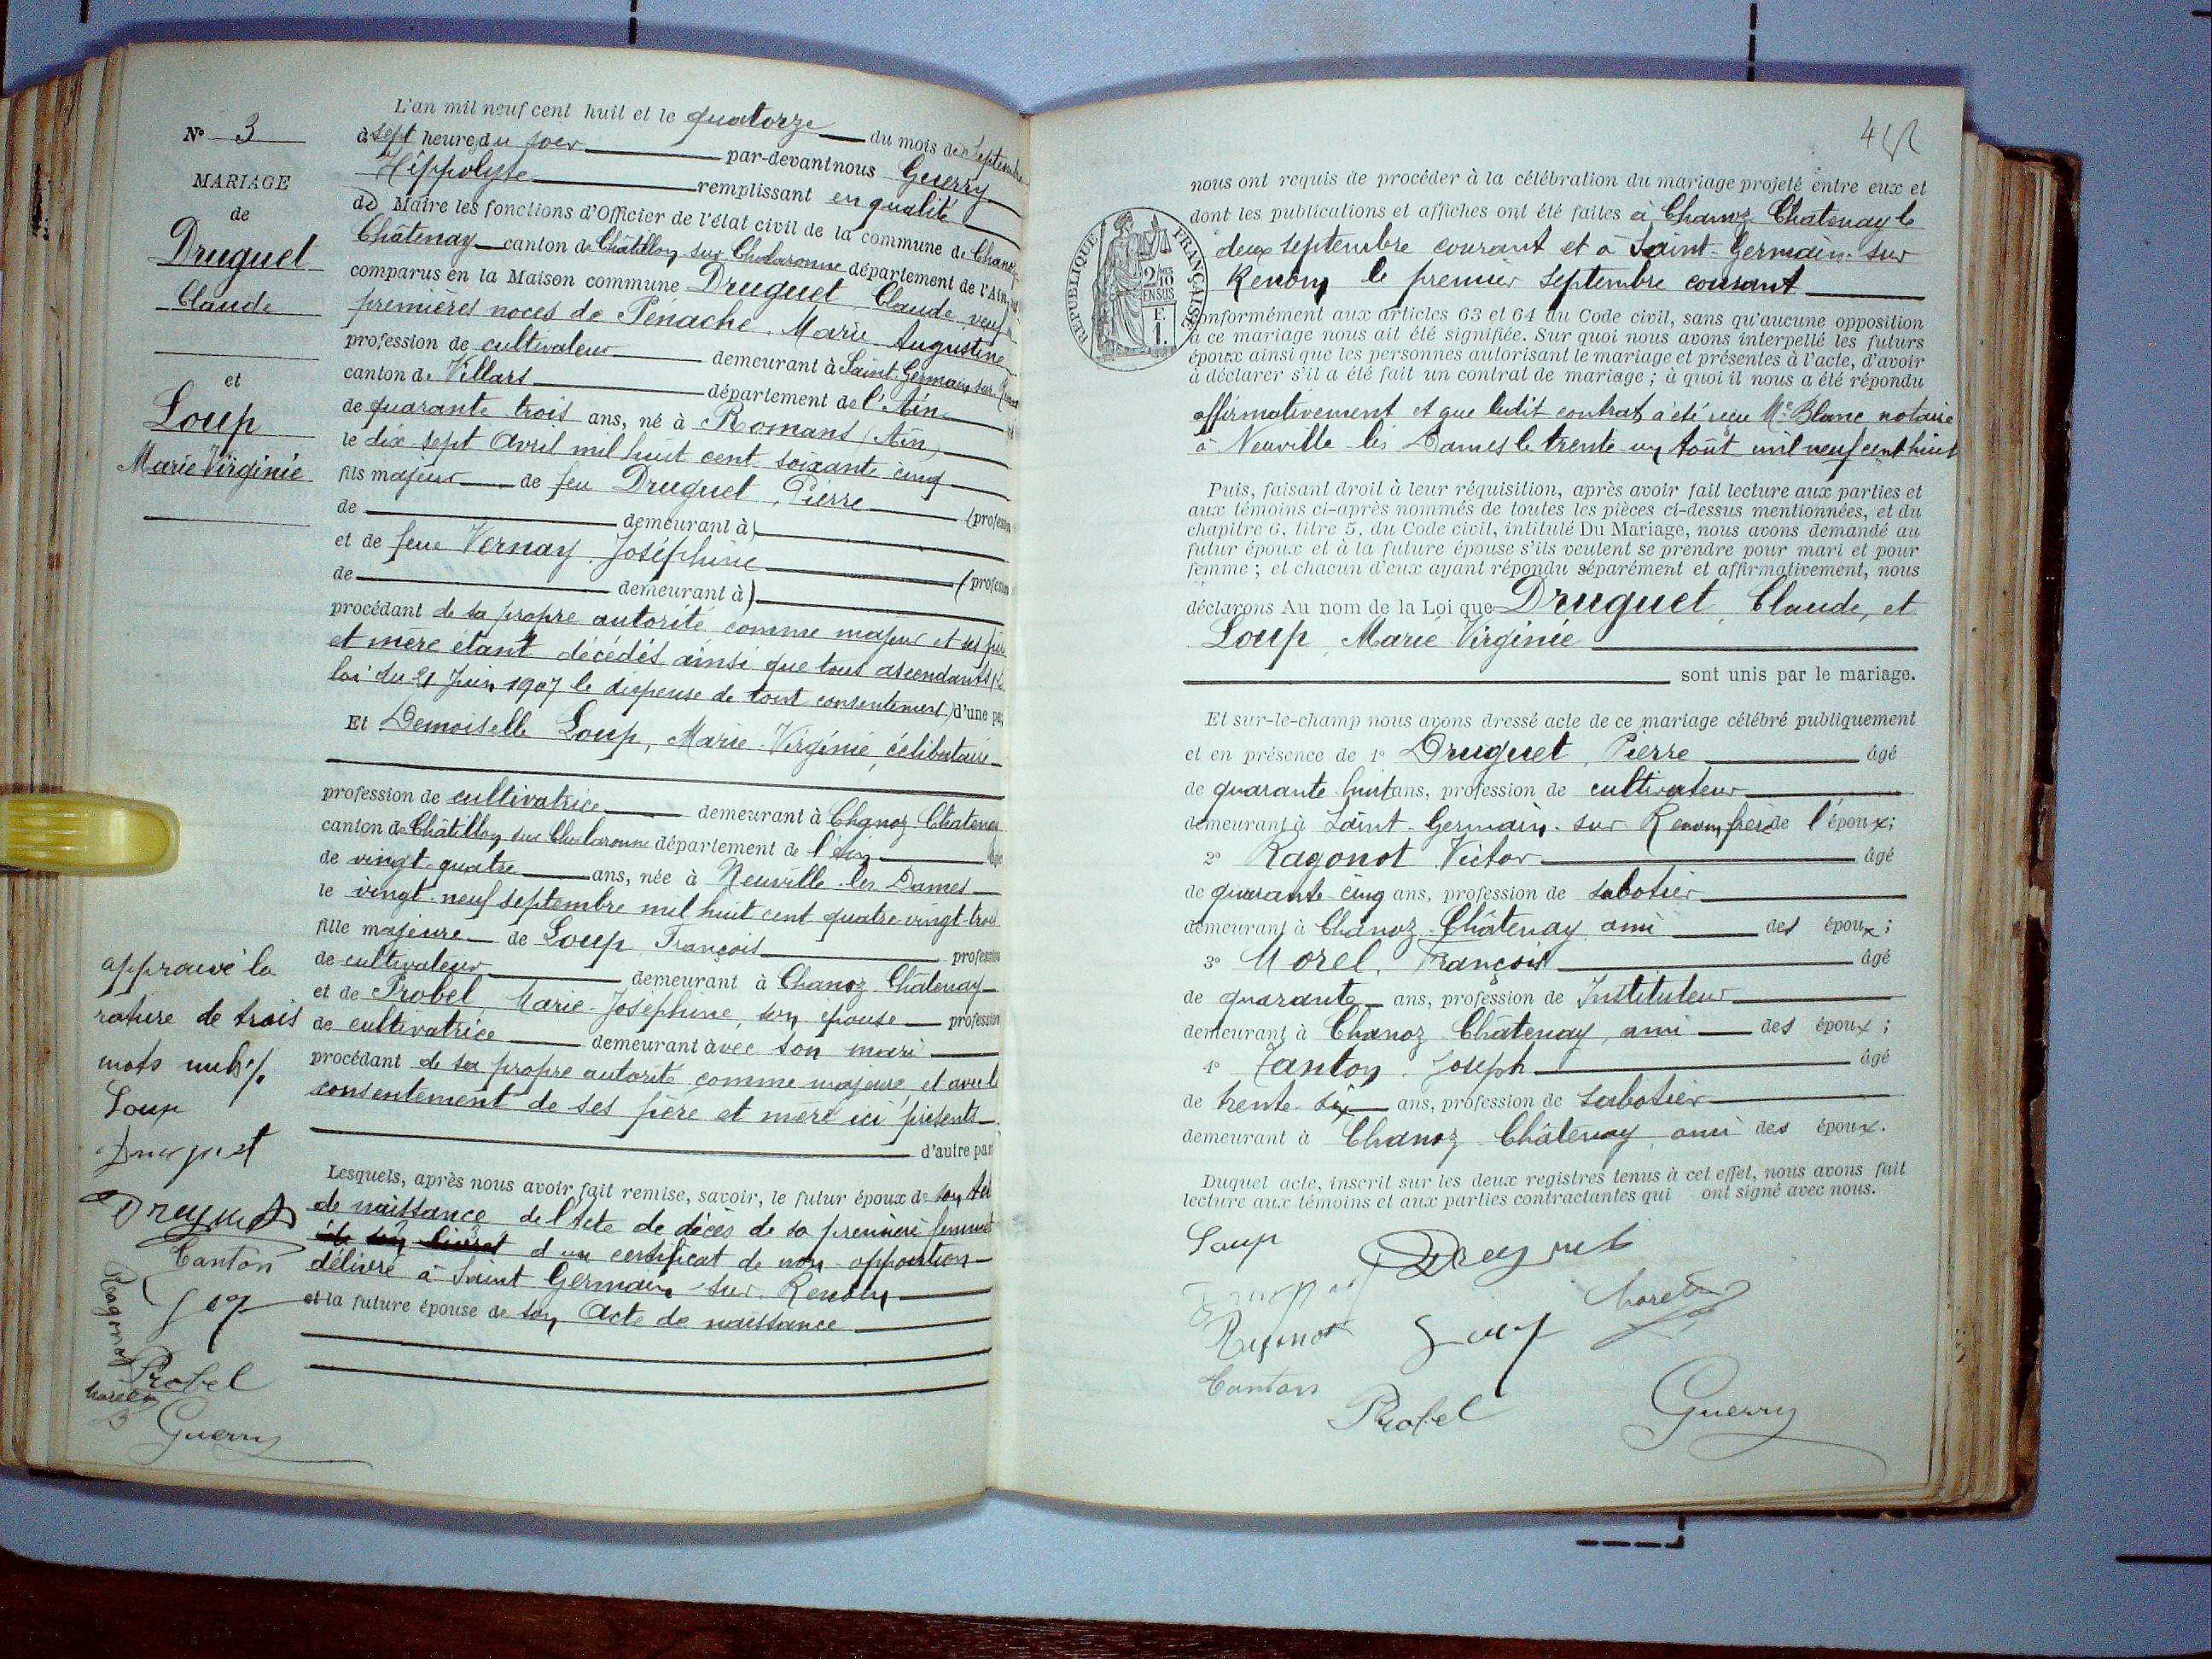 N° 3
MARIAGE
de
Druguet
Claude
et
Loup
Marie Virginie
L'an mil neuf cent huit et le quatorze du mois de Septembre
à sept heures du soir par-devant nous Guerry
Hippolyte remplissant en qualité
de Maire les fonctions d'Officier de l'état civil de la commune de Chanoz
Châtenay canton de Châtillon sur Chalaronne département de l'Ain,
comparus en la Maison commune Druguet Claude, veuf
premières noces de Pénache, Marie Augustine
profession de cultivateur demeurant à Saint-Germain sur
canton de Villars département de l'Ain
de quarante trois ans, né à Romans (Ain)
le dix sept Avril mil huit cent soixante cinq
fils majeur de feu Druguet, Pierre (profession
de demeurant à)
et de feue Vernay Joséphine (profession
de demeurant à)
procédant de sa propre autorité comme majeur et ses père
et mère étant décédés ainsi que tous ascendants,
loi du 21 Juin 1907 le dispense de tout consentement, d'une part
Et Demoiselle Loup, Marie-Virginie, célibataire
profession de cultivatrice demeurant à Chanoz-Châtenay
canton de Châtillon sur Chalaronne département de l'Ain
de vingt-quatre ans, née à Neuville-les Dames
le vingt-neuf septembre mil huit cent quatre vingt-trois
fille majeure de Loup François profession
de cultivateur demeurant à Chanoz-Châtenay
et de Probel Marie-Joséphine, son épouse profession
de cultivatrice demeurant avec son mari
procédant de sa propre autorité comme majeure, et avec le
consentement de ses père et mère ici présents
d'autre part
Lesquels, après nous avoir fait remise, savoir, le futur époux de son
de naissance de l'Acte de décès de sa première femme
de son livret d'un certificat de non-opposition
délivré à Saint Germain-sur-Renom
et la future épouse de son Acte de naissance
approuvé la
rature de trois
mots nuls
Loup
Druguet
Druguet
Tanton
Ragonot
Probel
Morel
Guerry
nous ont requis de procéder à la célébration du mariage projeté entre eux et
dont les publications et affiches ont été faites à Chanoz Châtenay le
deux septembre courant et à Saint-Germain-sur
Renom le premier septembre courant
RÉPUBLIQUE FRANÇAISE
conformément aux articles 63 et 64 du Code civil, sans qu'aucune opposition
à ce mariage nous ait été signifiée. Sur quoi nous avons interpellé les futurs
époux ainsi que les personnes autorisant le mariage et présentes à l'acte, d'avoir
à déclarer s'il a été fait un contrat de mariage ; à quoi il nous a été répondu
affirmativement et que ledit contrat a été reçu Me Blanc notaire
à Neuville-les Dames le trente un Août mil neuf cent huit
Puis, faisant droit à leur réquisition, après avoir fait lecture aux parties et
aux témoins ci-après nommés de toutes les pièces ci-dessus mentionnées, et du
chapitre 6, titre 5, du Code civil, intitulé Du Mariage, nous avons demandé au
futur époux et à la future épouse s'ils veulent se prendre pour mari et pour
femme ; et chacun d'eux ayant répondu séparément et affirmativement, nous
déclarons Au nom de la Loi que Druguet, Claude, et
Loup, Marie Virginie
sont unis par le mariage.
Et sur-le-champ nous avons dressé acte de ce mariage célébré publiquement
et en présence de 1° Druguet, Pierre âgé
de quarante huit ans, profession de cultivateur
demeurant à Saint-Germain-sur Renom, frère de l'époux;
2° Ragonot Victor âgé
de quarante-cinq ans, profession de sabotier
demeurant à Chanoz-Châtenay ami des époux;
3° Morel, François âgé
de quarante ans, profession de Instituteur
demeurant à Chanoz Châtenay, ami des époux;
4° Tanton, Joseph âgé
de trente-six ans, profession de sabotier
demeurant à Chanoz Châtenay, ami des époux.
Duquel acte, inscrit sur les deux registres tenus à cet effet, nous avons fait
lecture aux témoins et aux parties contractantes qui ont signé avec nous.
Loup Druguet
Druguet Morel
Ragonot
Tanton
Probel Guerry